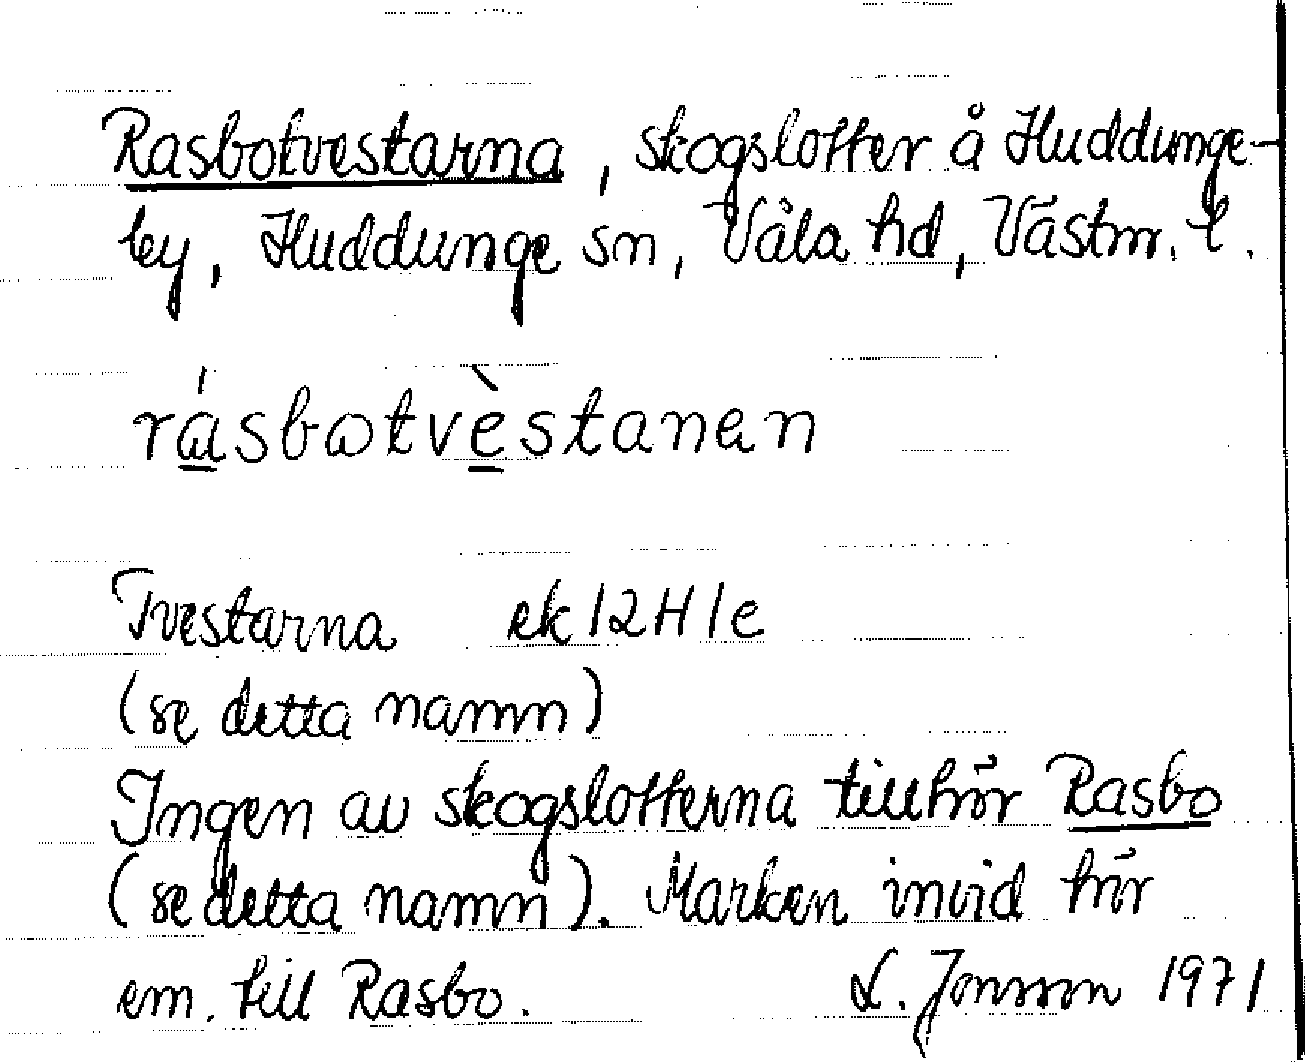 Rasbotvestarna, skogslotter å Huddunge-
by, Huddunge sn, Våla hd, Västm. l.
rásbωtvèstanan
Tvestarna ek 12H1e
(se detta namn)
Ingen av skogslotterna tillhör Rasbo
(se detta namn). Marken invid hör
em. till Rasbo. L. Jonsson 1971